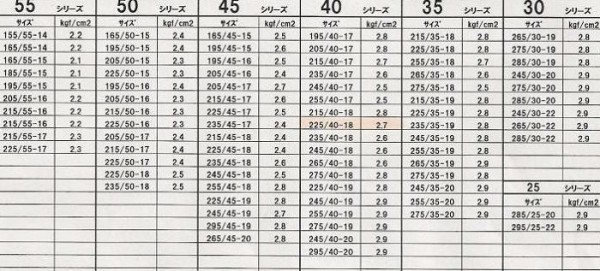 55 シリーズ 50 シリーズ 45 シリーズ 40 シリーズ 35 シリーズ 30 シリーズ
サイズ kgf/cm2 サイズ kgf/cm2 サイズ kgf/cm2 サイズ kgf/cm2 サイズ kgf/cm2 サイズ kgf/cm2
155/55-14 2.2 165/50-15 2.4 165/45-15 2.5 195/40-17 2.8 215/35-18 2.8 265/30-19 2.8
165/55-14 2.2 165/50-16 2.4 195/45-15 2.5 205/40-17 2.8 225/35-18 2.8 275/30-19 2.8
165/55-15 2.1 195/50-15 2.3 195/45-16 2.5 215/40-17 2.7 255/35-18 2.6 265/30-20 2.8
185/55-15 2.1 225/50-15 2.3 245/45-16 2.4 235/40-17 2.6 265/35-18 2.6 255/30-20 2.8
195/55-15 2.1 195/50-16 2.4 205/45-17 2.6 245/40-17 2.5 275/35-18 2.5 285/30-20 2.8
205/55-16 2.2 205/50-16 2.3 215/45-17 2.6 255/40-17 2.5 215/35-19 2.8 245/30-22 2.9
215/55-16 2.2 215/50-16 2.3 225/45-17 2.5 215/40-18 2.8 225/35-19 2.8 255/30-22 2.9
225/55-16 2.2 225/50-16 2.3 235/45-17 2.4 225/40-18 2.7 235/35-19 2.8 265/30-22 2.9
215/55-17 2.3 205/50-17 2.4 245/45-17 2.4 235/40-18 2.6 245/35-19 2.8 285/30-22 2.9
225/55-17 2.3 215/50-17 2.4 225/45-18 2.6 245/40-18 2.6 255/35-19 2.8
225/50-17 2.4 245/45-18 2.6 265/40-18 2.6 265/35-19 2.9
235/50-18 2.5 255/45-18 2.8 225/40-19 2.9 275/35-19 2.8 25 シリーズ
225/45-19 2.9 245/40-19 2.9 245/35-20 2.9 サイズ kgf/cm2
245/45-19 2.7 255/40-19 2.9 255/35-20 2.9 285/25-20 2.9
295/45-19 2.8 275/40-19 2.9 275/35-20 2.9 295/25-22 2.9
265/45-20 2.8 245/40-20 2.9
295/40-20 2.9